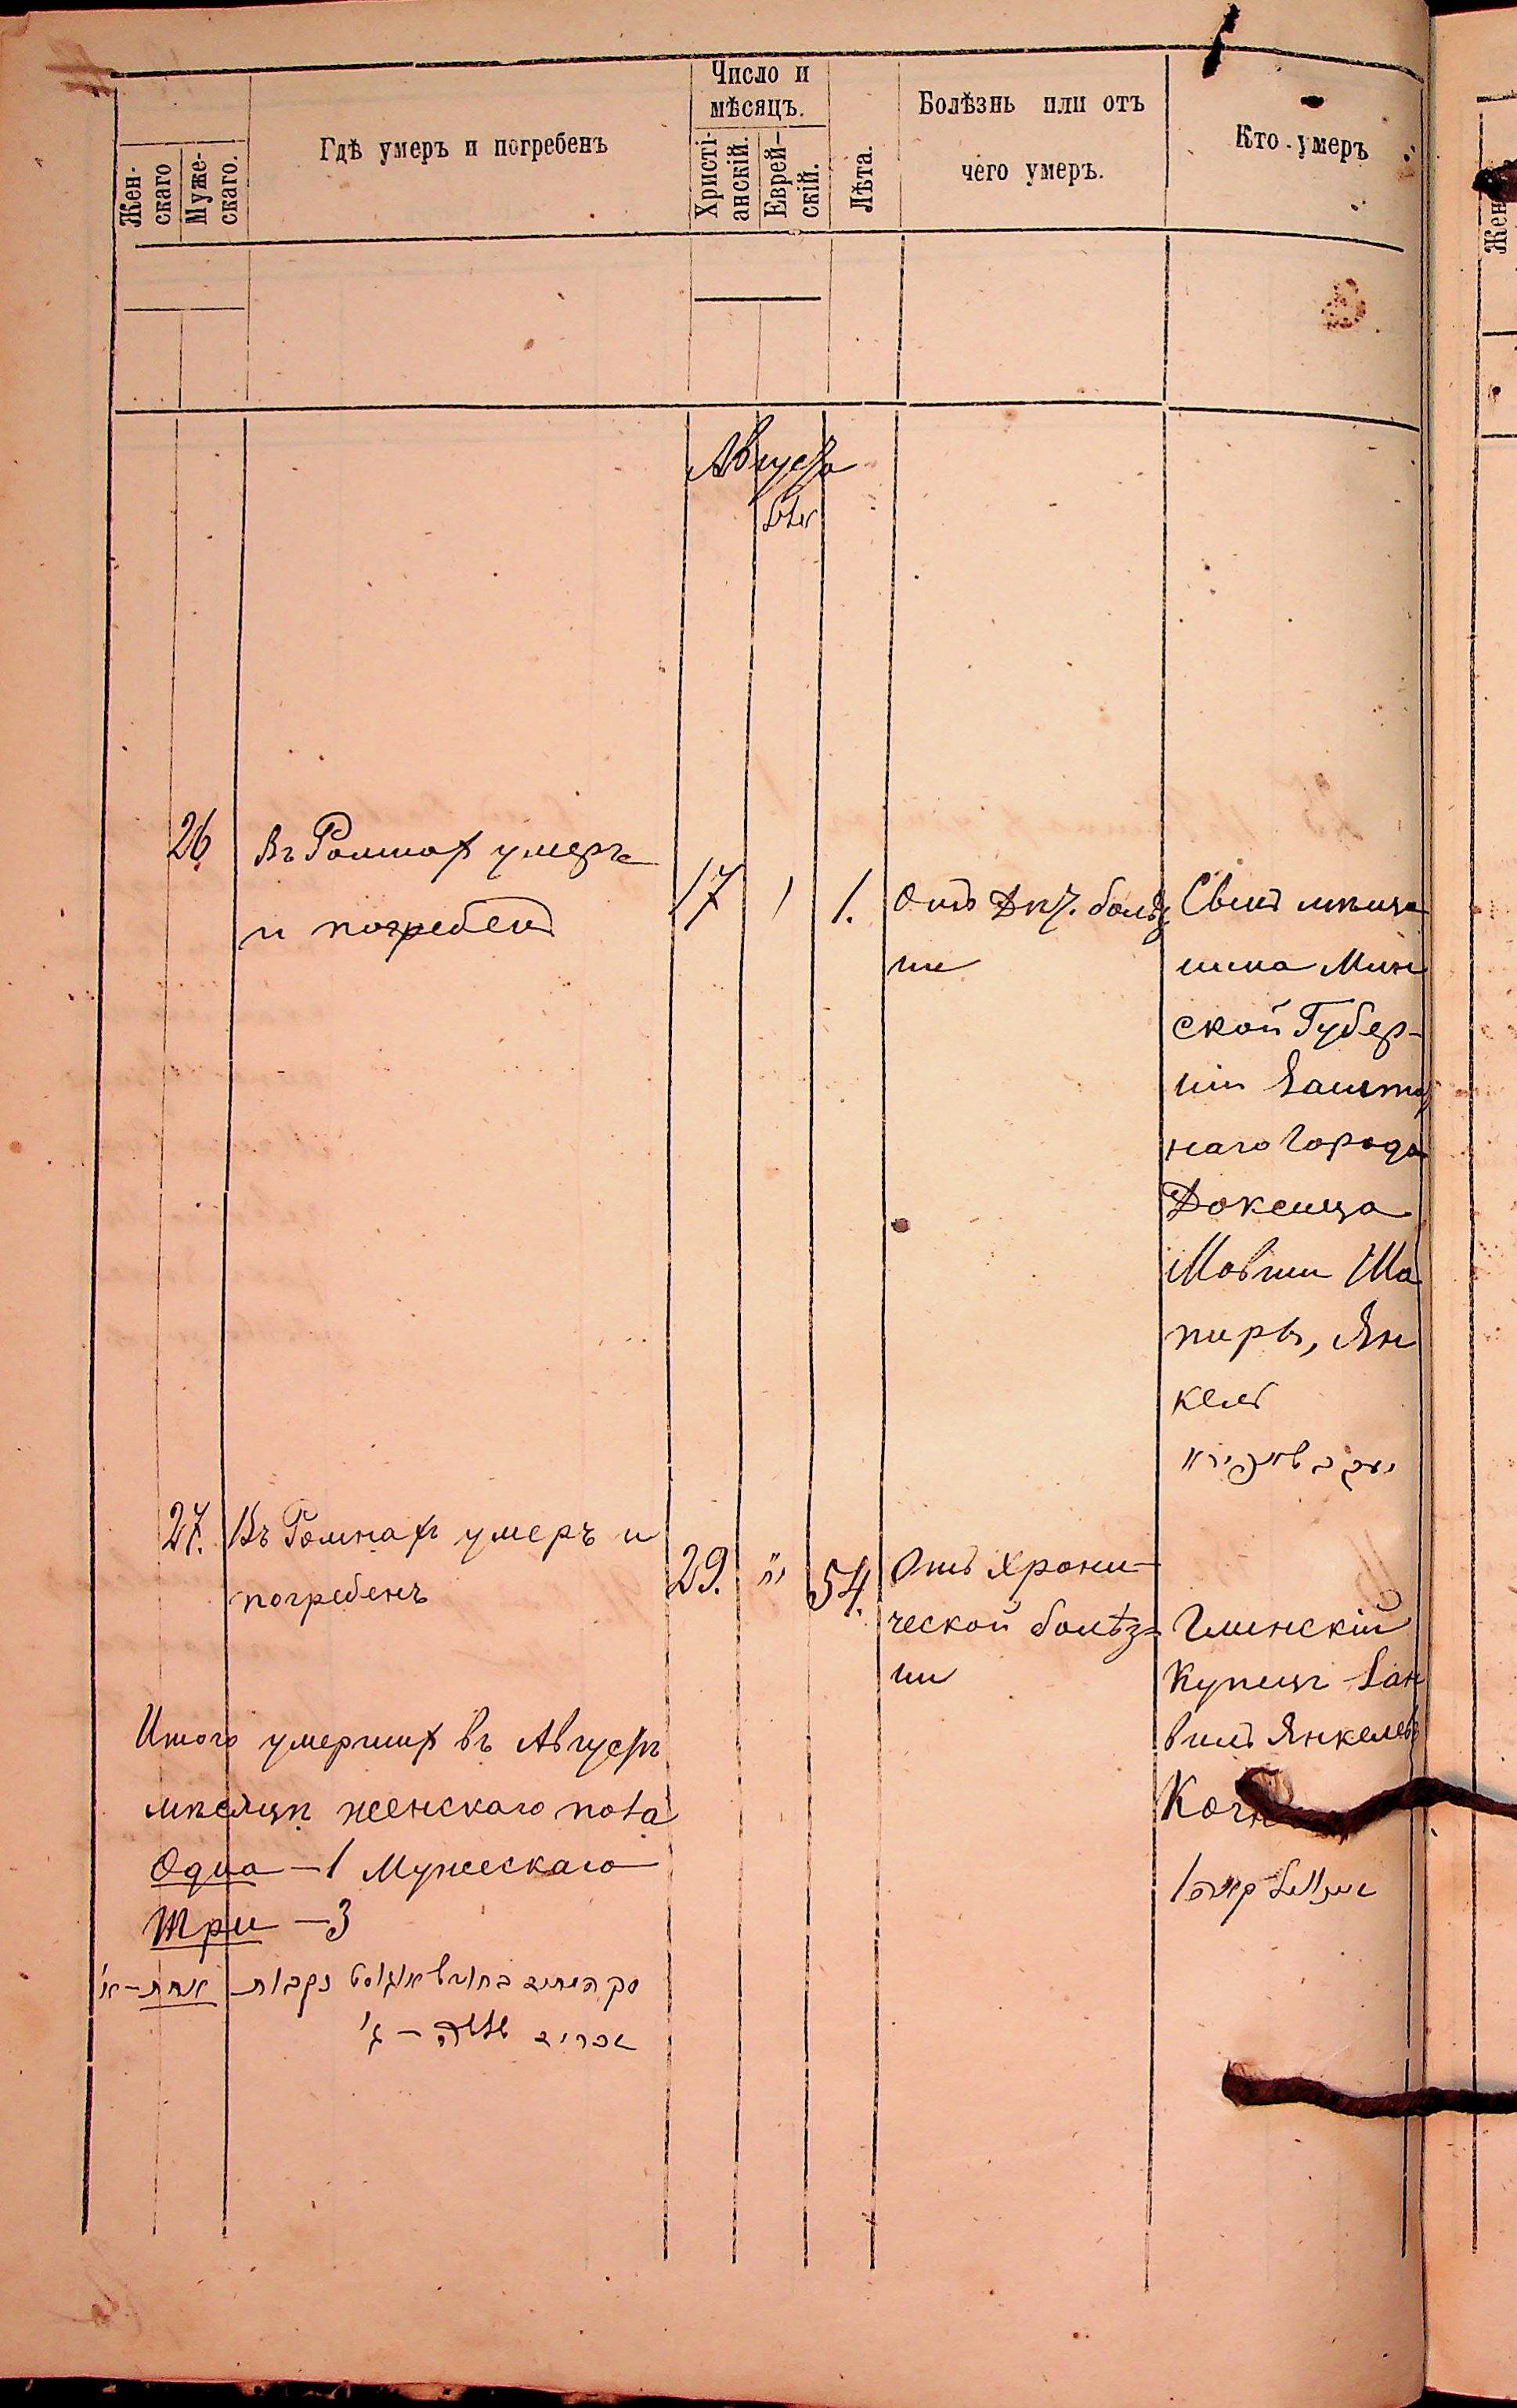 Жен-
скаго
Муже-
скаго.
Гдѣ умеръ и погребенъ
Число и
мѣсяцъ.
Христі-
анскій.
Еврей-
скій.
Лѣта.
Болѣзнь или отъ
чего умеръ.
Кто умеръ
Августа
אלול
26
Въ Ромнах умеръ
и погребенъ
17
1.
Отъ Дѣт. болѣз
ни
Сынъ мѣща
нина Мин
ской Губер-
ніи Заштат
наго Города
Докшица
Мовши Ша
пиры, Ян
кель
27.
Въ Ромнахъ умеръ и
погребенъ
29.
54.
Отъ хрони-
ческой болѣз-
ни
Глинскій
Купецъ
Янкелевъ
סך המתים בחודש אויגוסט נקבות אחת - א'
זכרים שלשה - ג'
Итого умершихъ въ Августѣ
мѣсяцѣ женскаго пола
Одна - 1 Мужескаго
Три - 3
Жен